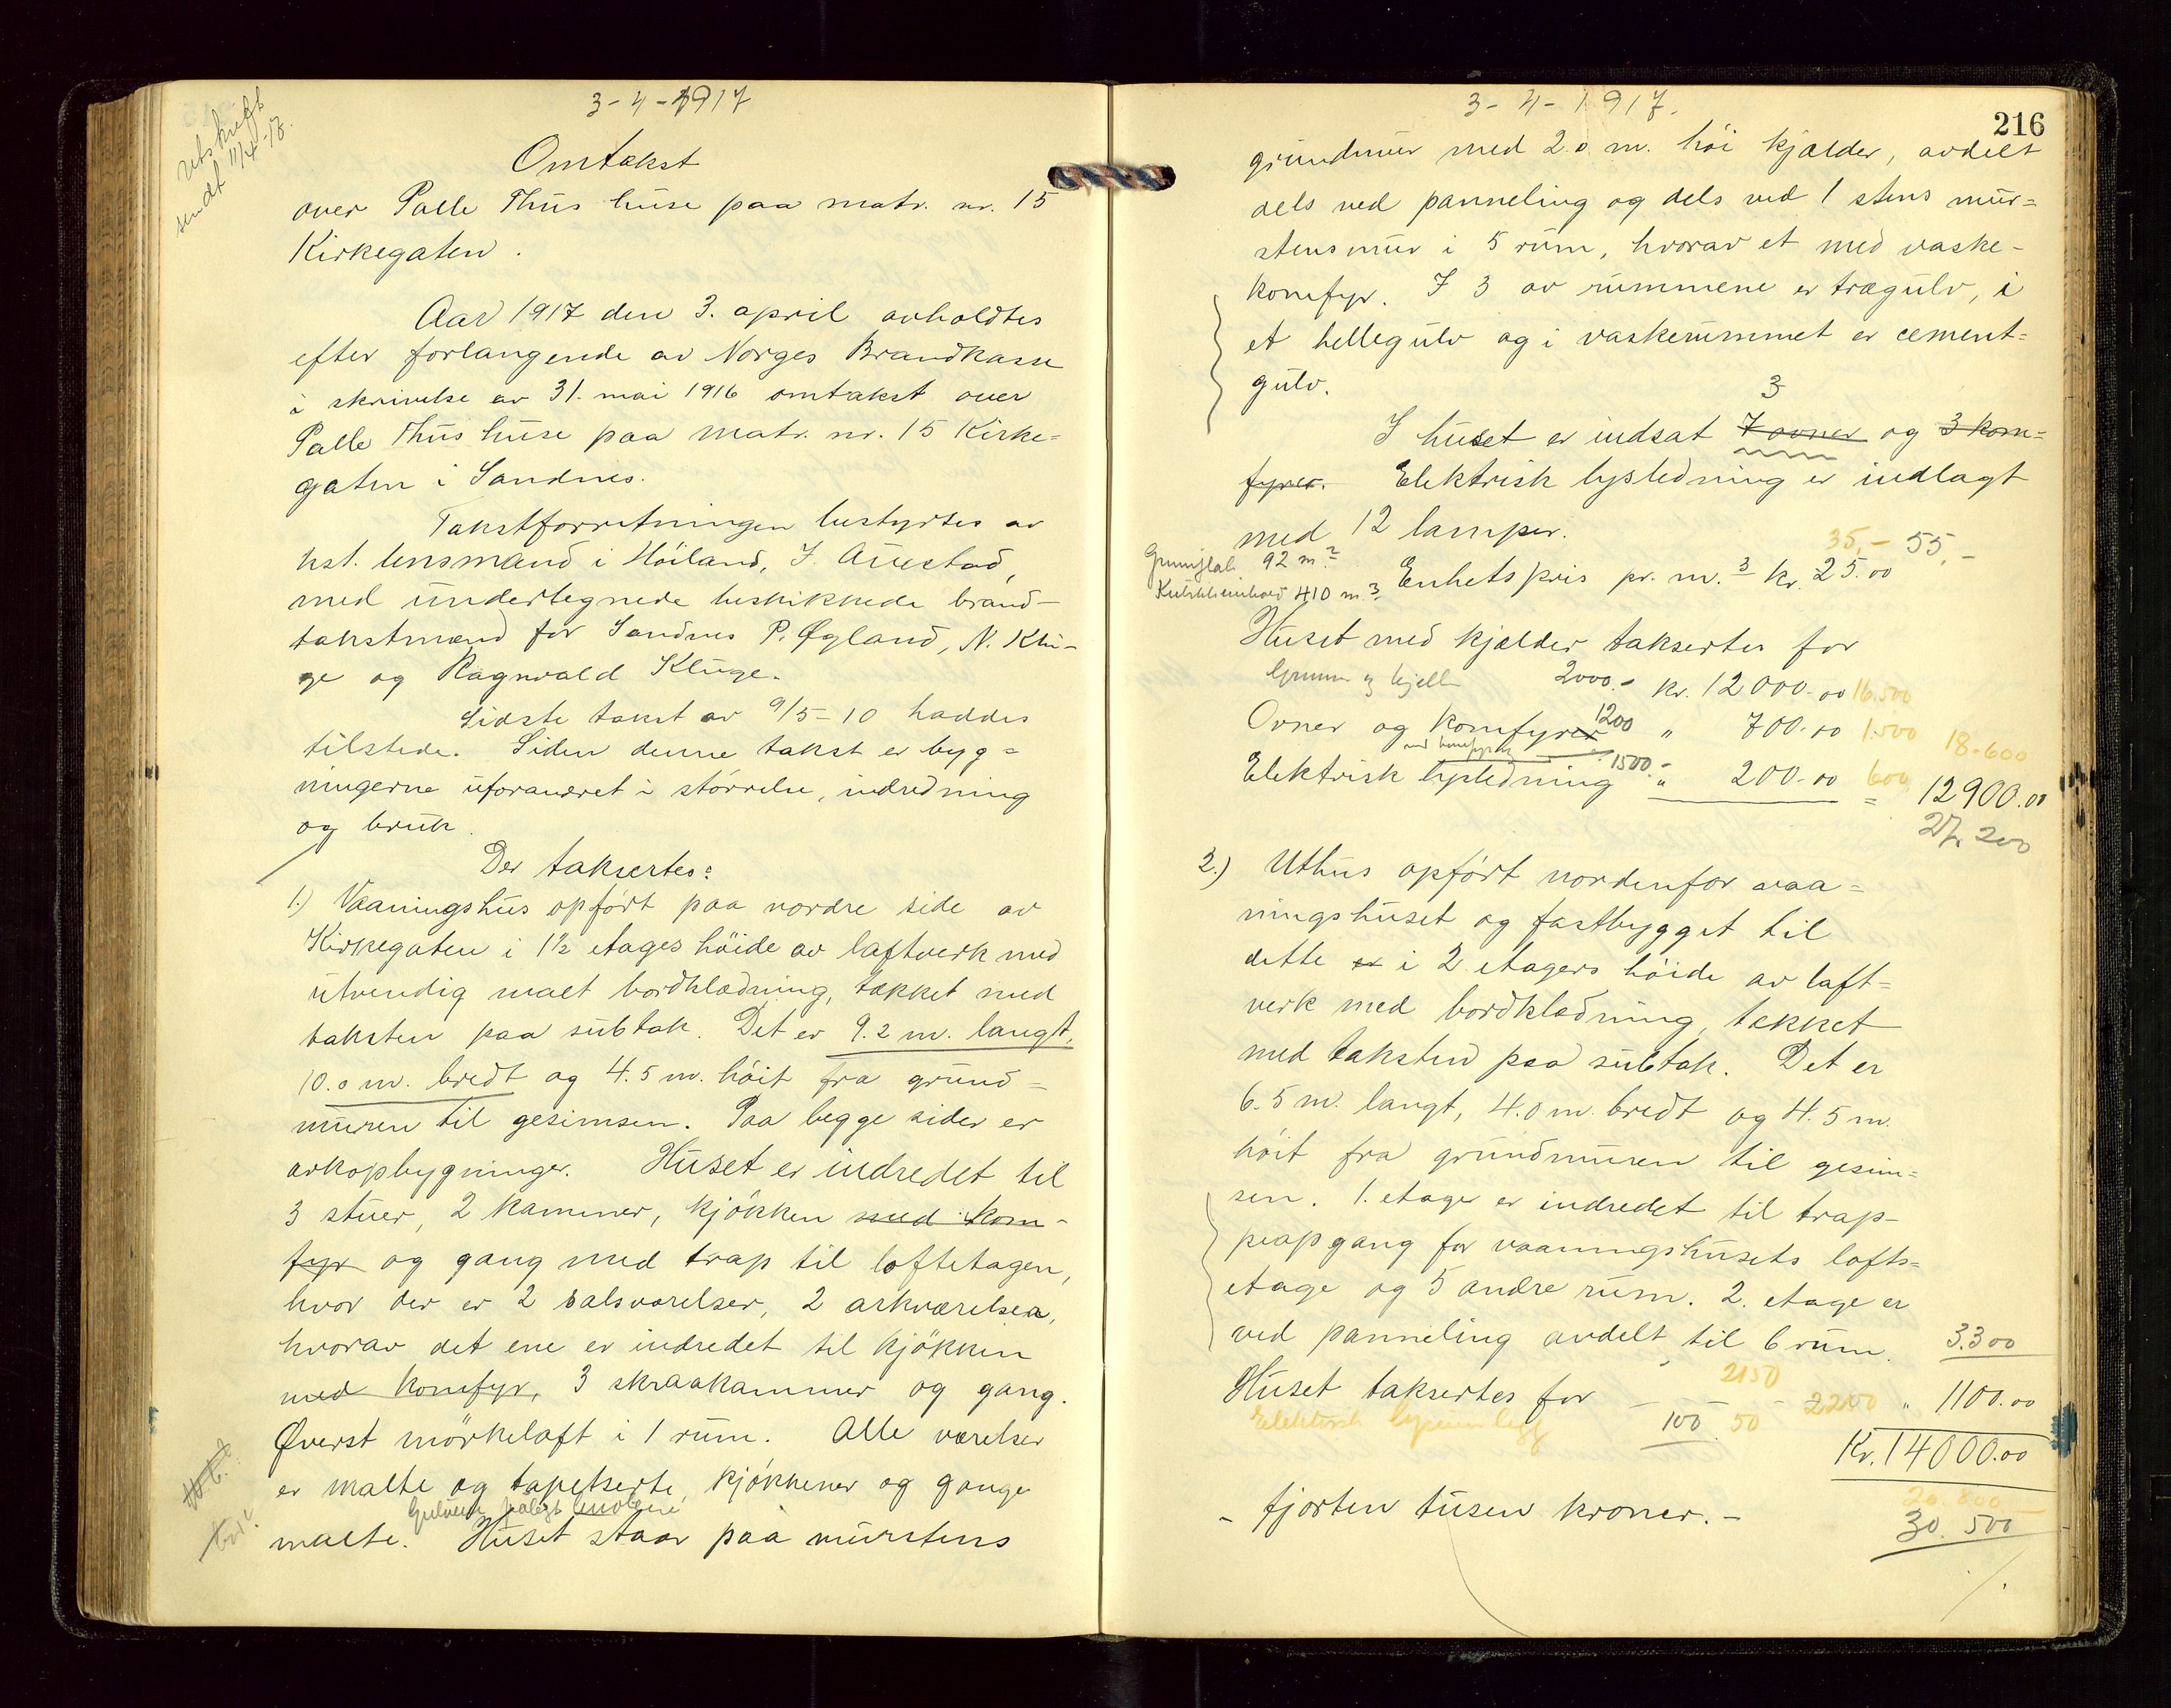 3-4-1917
Utskrift
sendt 11/4-17.
Omtakst
over Palle Thus huse paa matr. nr. 15
Kirkegaten.
Aar 1917 den 3. april avholdtes
efter forlangende av Norges Brandkasse
i skrivelse av 31. mai 1916 omtakst over
Palle Thus huse paa matr. nr. 15 Kirke=
gaten i Sandnes.
Takstforretningen bestyrtes av
kst. lensmand i Höiland, J. Auestad,
med undertegnede beskikkede brand-
takstmænd for Sandnes P. Øgland, N. Klu-
ge og Ragnvald Kluge.
Sidste takst av 9/5-10 haddes
tilstede. Siden denne takst er byg=
ningerne uforandret i störrelse, indredning
og bruk.
Der taksertes:
1.) Vaaningshus opfört paa nordre side av
Kirkegaten i 1½ etages höide av laftverk med
utvendig malt bordklædning, tækket med
taksten paa subtak. Det er 9.2 m. langt,
10.0 m. bredt og 4.5 m. höit fra grund=
muren til gesimsen. Paa begge sider er
arkopbygninger. Huset er indredet til
3 stuer, 2 kammer, kjökken med kom-
fyr og gang med trap til loftetagen,
hvor der er 2 salsværelser, 2 arkværelser,
hvorav det ene er indredet til kjökken
med komfyr, 3 skraakammer og gang.
Øverst mörkeloft i 1 rum. Alle værelser
er malte og tapetserte, kjökkener og gange
malte. Huset staar paa murstens
3-4-1917.
216
grundmur med 2.0 m. höi kjælder, avdelt
dels ved panneling og dels ved 1 stens mur=
stensmur i 5 rum, hvorav et med vaske-
komfyr. I 3 av rummene er trægulv, i
et hellegulv og i vaskerummet er cement=
gulv.
3
I huset er indsat 7 ovner og 3 kom=
fyrer. Elektrisk lysledning er indlagt
med 12 lamper.
35,- 55,-
Grunnflate 92 m.2
Kubikkinnhold 410 m.3
Enhetspris pr. m.3 kr. 25.00
Huset med kjælder taksertes for
Grunn og kjeller 2000.- kr. 12000.00 16.500
Ovner og komfyrer 1200 " 700.00 1.500 18.600
Elektrisk lysledning 1500.- " 200.00 600 = 12900.00
27.200
2.) Uthus opfört nordenfor vaa=
ningshuset og fastbygget til
dette er i 2 etagers höide av laft=
verk med bordklædning, tækket
med taksten paa subtak. Det er
6.5 m. langt, 4.0 m. bredt og 4.5 m.
höit fra grundmuren til gesim=
sen. 1. etage er indredet til trap-
peopgang for vaaningshusets lofts=
etage og 5 andre rum. 2. etage er
ved panneling avdelt til 6 rum. 3.300
2150
Huset taksertes for - - 2200 " 1100.00
Elektrisk 100 50
Kr. 14000.00
20.800
- fjorten tusen kroner. -
30.500